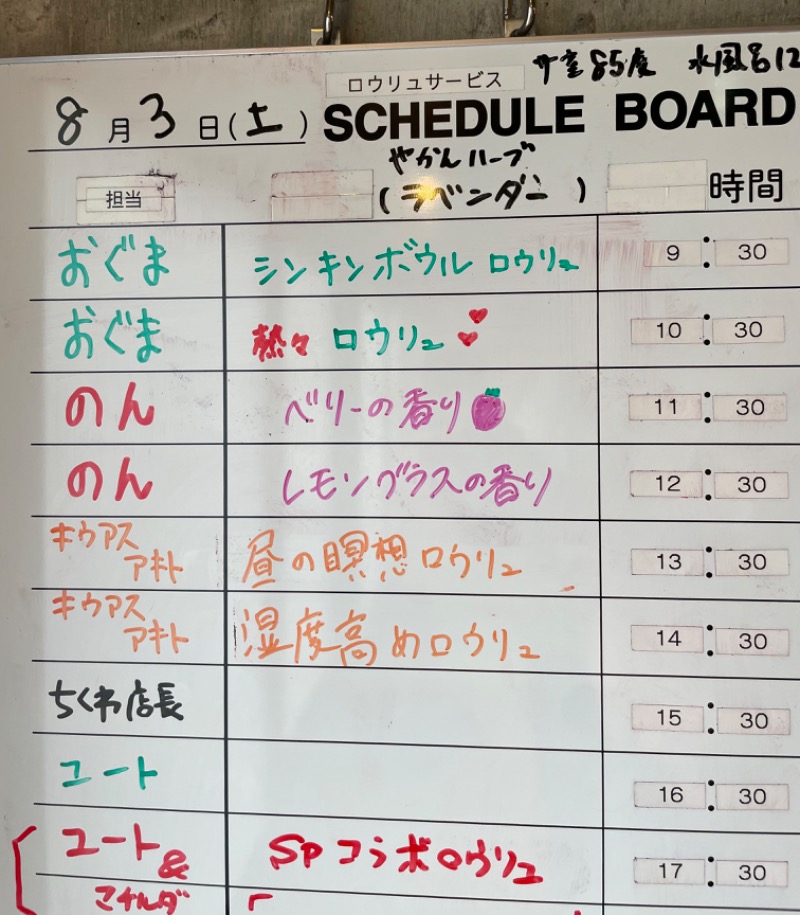 サ室85度 水風呂12
ロウリュサービス
8月3日(土) SCHEDULE BOARD
やかんハーブ
担当 (ラベンダー) 時間
おぐま シンキンボウル ロウリュ 9:30
おぐま 熱々ロウリュ 10:30
のん ベリーの香り 11:30
のん レモングラスの香り 12:30
キウアス
アキト 昼の瞑想ロウリュ 13:30
キウアス
アキト 湿度高めロウリュ 14:30
ちくわ店長 15:30
ユート 16:30
ユート& SPコラボロウリュ 17:30
マチルダ